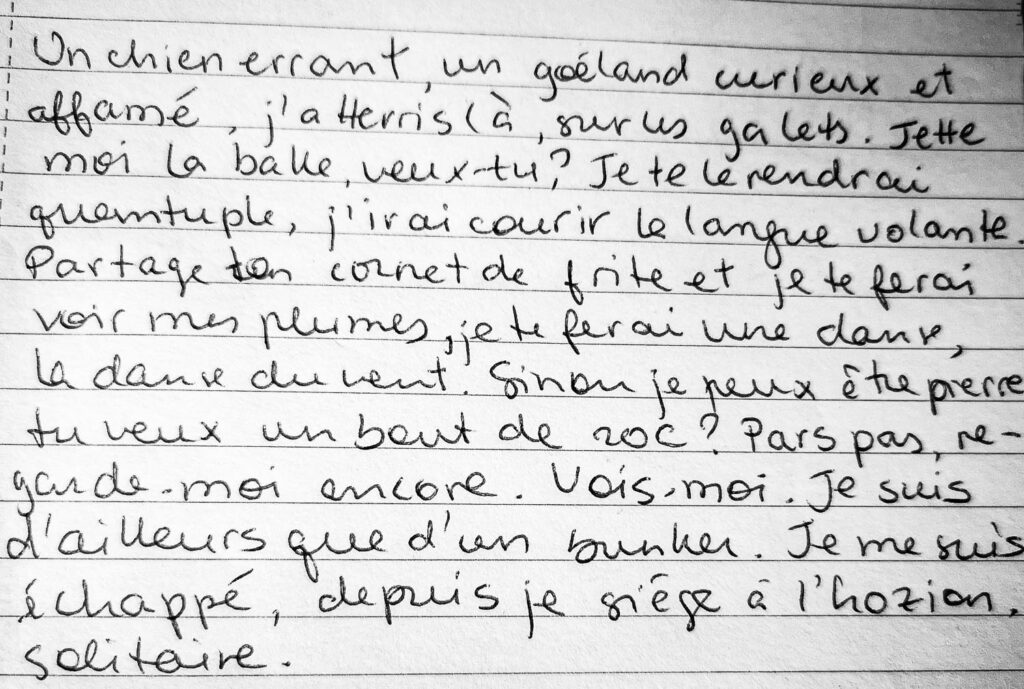 Un chien errant, un goéland curieux et
affamé, j'atterris là, sur les galets. Jette
moi la balle, veux-tu? Je te le rendrai
quemtuple, j'irai courir la langue volante.
Partage ton cornet de frite et je te ferai
voir mes plumes, je te ferai une danse,
la danse du vent. Sinon je peux être pierre
tu veux un bout de roc? Pars pas, re-
garde-moi encore. Vois-moi. Je suis
d'ailleurs que d'un bunker. Je me suis
échappé, depuis je siège à l'hozion,
solitaire.